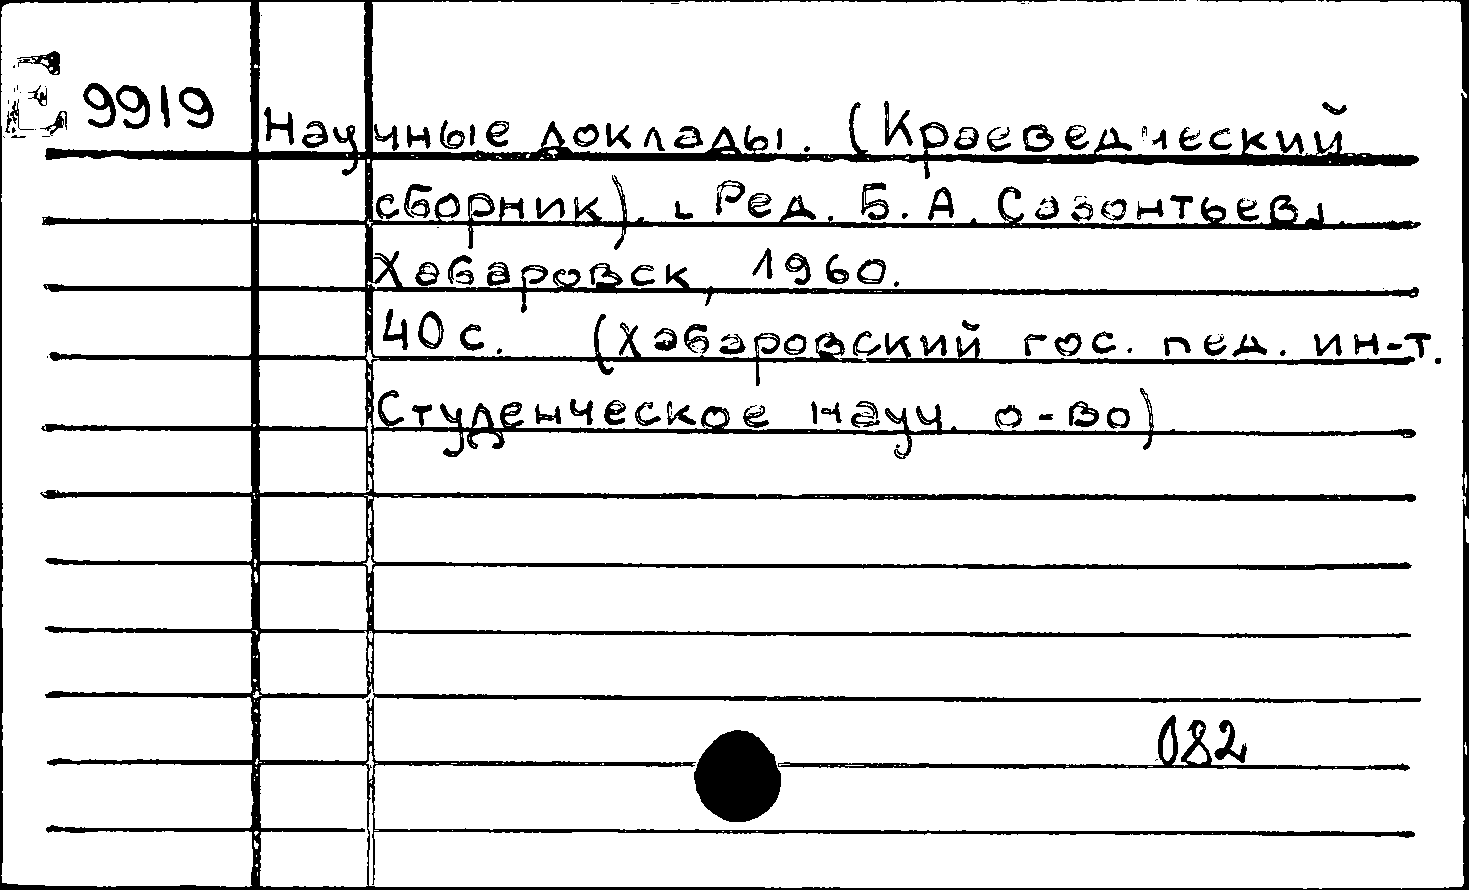 Е 9919
Научные доклады. (Краеведческий
сборник). [Ред. Б. А. Сазонтьев].
Хабаровск, 1960.
40 с. (Хабаровский гос. пед. ин-т.
Студенческое науч. о-во)
082